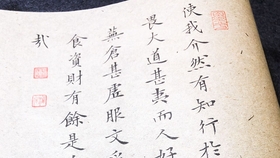 使我介然有知行於
畏大道甚夷而人好
蕪倉甚虛服文
食資財有餘是
哉